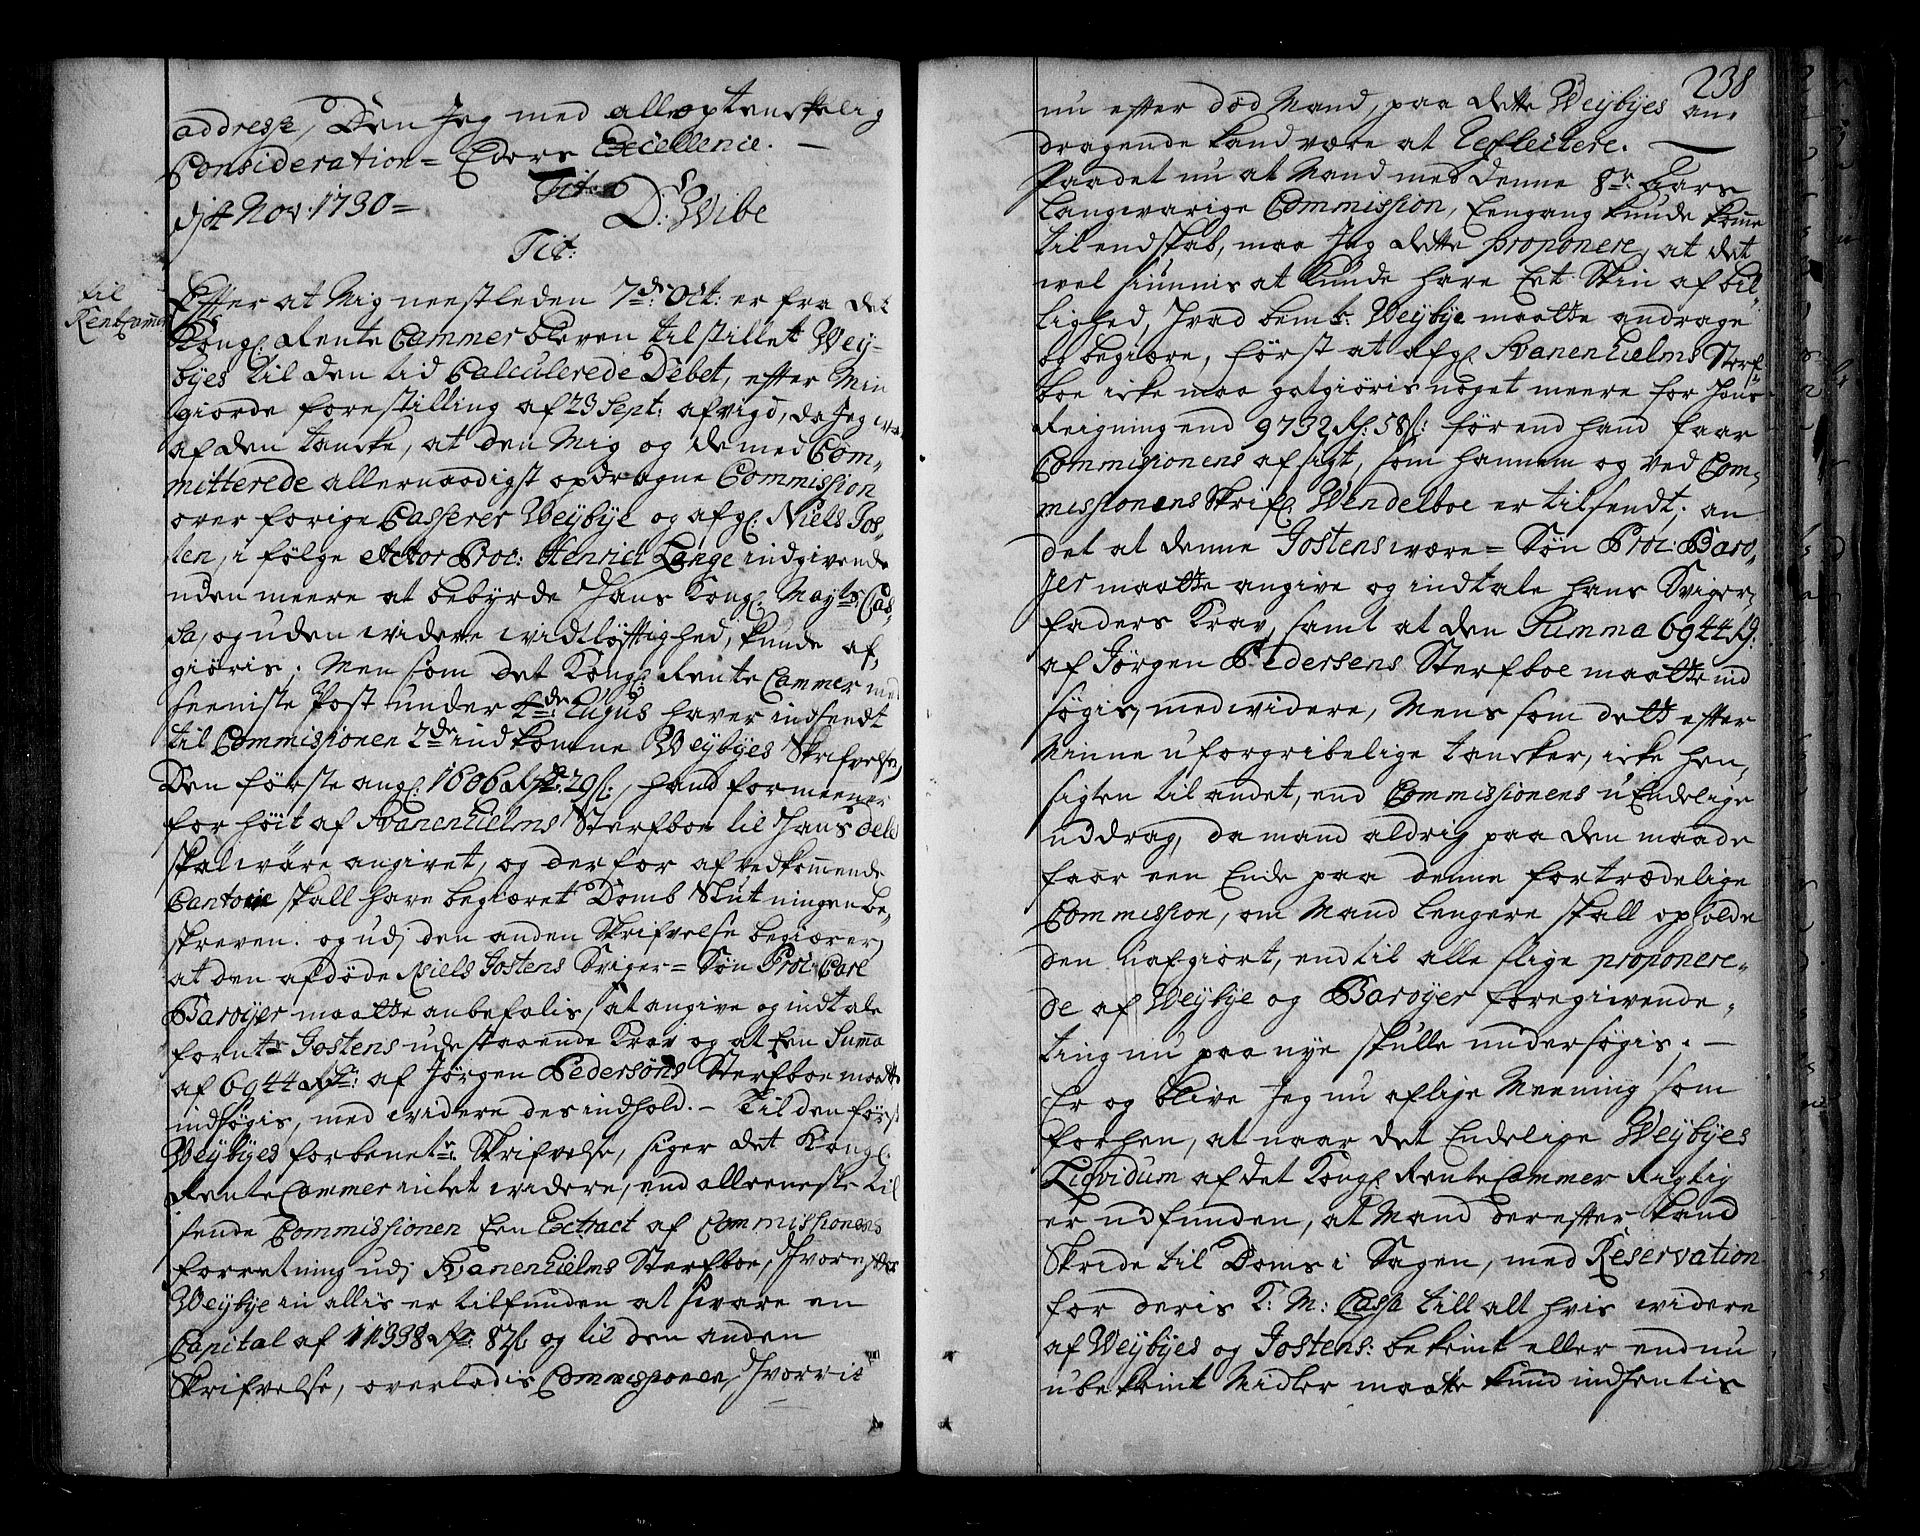 addresse, Den Jeg med all optenckelig
Consideration = Eders Excellence. —
Tit:
d: 4 Nov: 1730 =
D: Wibe
Tit:
til
RenteCammer
Efter at Mig neestleden 7de Oct: er fra det
Kongl: Rente Cammer bleven tilstillet Wey=
byes til den tid Calculerede Debet, efter Min
giorde forestilling af 23 Sept: afvigt, da Jeg war
af den tancke, at den Mig og de med Com=
mitterede allernaadigst opdragne Commission
over forige Casserer Weybye og afg: Niels Jos=
ten, i følge Actor Proc: Henrich Lange indgivende
uden meere at bebyrde Hans Kongl: Mayts Cas=
sa, og uden widere widtløftighed, kunde af=
giøris; Men som det Kongl: Rente Cammer med
seeniste Post under 4de Augus haver indsendt
til Commissionen 2de indkomne Weybyes Skrifvelser,
Den første angl: 1606 Rd: 29 s:, hand formeener
for høit af Svanenhielms Sterfboe til Hans dels
skal wære angivet, og derfor af vedkommende
Cantoir skall have begiæret Domb Slutningen be=
skreven. og udj den anden Skrifvelse begiærer,
at den afdøde Niels Jostens Sviger = Søn Proc: Carl
Baroyer maatte anbefalis, at angive og indtale
forn:te Jostens udestaaende Krav og at Een Summa
af 6944 Rd: af Jørgen Pedersøns Sterfboe maatte
indsøgis, med widere des indhold. – Til den først
Weybyes forbenete Skrifvelse, siger det Kongl:
Rente Cammer intet widere, end alleeneste til
sende Commissionen Een Extract af Commissionens
forretning udj Svanenhielms Sterfboe, Hvorefter
Weybye in allis er tilfunden at svare en
Capital af 11338 Rd: 87 s: og til den anden
Skrifvelse, overladis Commissionen, Hvorvit
238
nu efter død Mand, paa dette Weybyes an=
dragende kand være at Reflectere. —
Paadet nu at Mand med denne 8te Aars
Langvarige Commission, Eengang kunde komme
til endskab, maa Jeg dette proponere, at det
vel siunnis at kunde have Eet Skin af bil=
lighed, Hvad bem:te Weybye maatte andrage
og begiære, først at afg: Svanenhielms Sterf=
boe icke maa gotgiøris noget meere for Hans
Reigning end 9732 Rd: 58 s: før end hand faar
Commissionens afsigt, som hannem og ved Com=
missionens Skrifr: Wendelboe er tilsendt; an
det at denne Jostens wære = Søn Proc: Baro=
yer maatte angive og indtale hans Sviger,
faders Krav, samt at den Summa 6944 Rd:
af Jørgen Pedersens Sterfboe maatte ind
søgis, med widere, Mens som dette efter
Minne uforgribelige tancker, icke hen,
sigten til andet, end Commissionens uEndelige
uddrag, da mand aldrig paa den maade
faar een Ende paa denne fortrædelige
Commission, om Mand lengere skall opholde
den uafgiort, endtil alle slige proponere=
de af Weybye og Baroyer foregivende=
ting nu paa nye skulle undersøgis; —
Er og blive Jeg nu af lige Meening som
forhen, at naar det Endelige Weybyes
Liqvidum af det Kongl: Rente Cammer Rigtig
er udfunden, at Mand derefter kand
Skride til Doms i Sagen, med Reservation
for deris K: M: Cassa till alt hvis widere
af Weybyes og Jostens: bekeint eller end nu
ubekeint Midler maatte kund indhentis